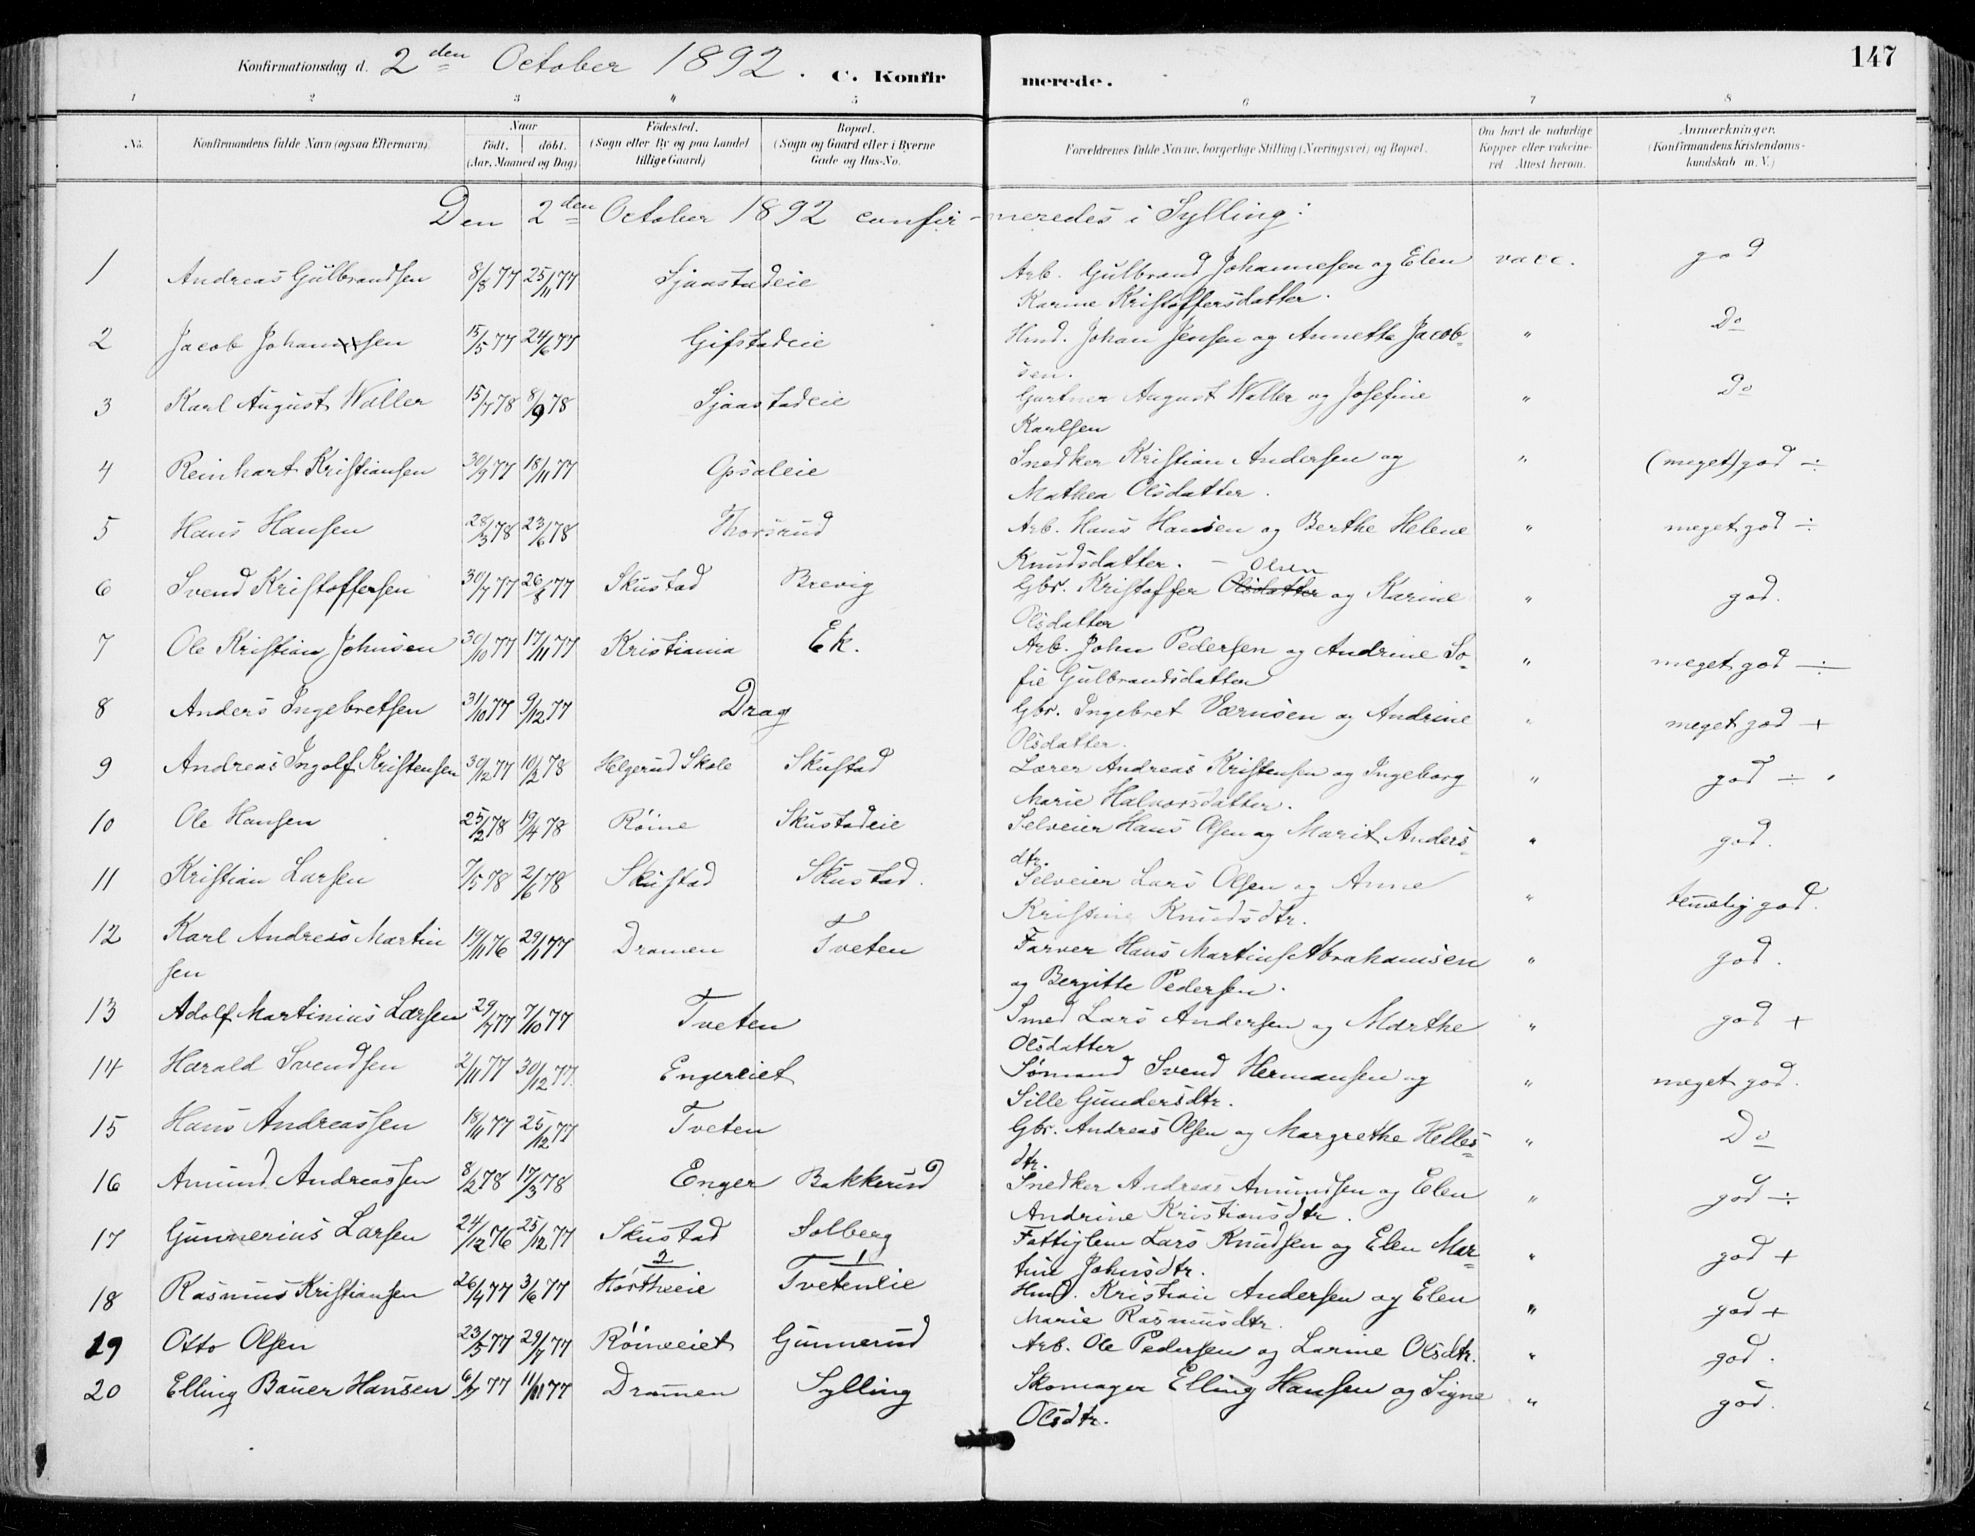 147
Konfirmationsdag d. 2den October 1892. C. Konfirmerede.
1 2 3 4 5 6 7 8
No. Konfirmandens fulde Navn (ogsaa Efternavn). Naar født. døbt. (Aar, Maaned og Dag) Fødested. (Sogn eller By og paa Landet tillige Gaard) Bopæl. (Sogn og Gaard eller i Byerne Gade og Hus-No. Forældrenes fulde Navne, borgerlige Stilling (Næringsvei) og Bopæl. Om havt de naturlige Kopper eller vaccineret. Attest herom. Anmærkninger. (Konfirmandens Kristendomskundskab m. V.)
Den 2den October 1892 confirmeredes i Sylling:
1 Andreas Gulbrandsen 8/8 77 25/11 77 Sjaastadeie Arb. Gulbrand Johannesen og Elen vacc. god
Karine Kristoffersdatter.
2 Jacob Johansen 15/5 77 24/6 77 Gifstadeie Hmd. Johan Jensen og Annette Jacob- " Do
sen.
3 Karl August Waller 15/7 78 8/9 78 Sjaastadeie Gartner August Waller og Josefine " Do
Karlsen
4 Reinhart Kristiansen 30/9 77 18/11 77 Opsaleie Snedker Kristian Andersen og " (meget) god ÷
Mathea Olsdatter.
5 Hans Hansen 28/3 78 23/6 78 Thorsrud Arb. Hans Hansen og Berthe Helene " meget god ÷
Knudsdatter. - Olsen
6 Svend Kristoffersen 30/7 77 26/8 77 Skustad Brevig Gbr. Kristoffer Olsdatter og Karine " god.
Olsdatter
7 Ole Kristian Johnsen 30/10 77 17/11 77 Kristiania Ek. Arb. John Pedersen og Andrine So- " meget god ÷
fie Gulbrandsdatter
8 Anders Ingebretsen 31/10 77 9/12 77 Drag Gbr. Ingebret Værnsen og Andrine " meget god +
Olsdatter.
9 Andreas Ingolf Kristensen 30/12 77 10/2 78 Helgerud Skole Skustad Lærer Andreas Kristensen og Ingeborg " god ÷
Marie Halvorsdatter.
10 Ole Hansen 25/2 78 19/4 78 Röine Skustadeie Selveier Hans Olsen og Marit Anders- " god.
dtr.
11 Kristian Larsen 7/5 78 2/6 78 Skustad Skustad. Selveier Lars Olsen og Anne " temelig god.
Kristine Knudsdtr.
12 Karl Andreas Martin 19/11 76 29/1 77 Dramen Tveten Farver Hans Martins Abrahamsen " god.
sen og Bergitte Pedersen.
13 Adolf Martinius Larsen 29/7 77 7/10 77 Tveten Smed Lars Andersen og Marthe " god +
Olsdatter
14 Harald Svendsen 2/11 77 30/12 77. Engereiet Sømand Svend Hermansen og " meget god.
Sille Gundersdtr.
15 Hans Andreassen 18/11 77 25/12 77 Tveten Gbr. Andreas Olsen og Margrethe Helles- " Do
dtr.
16 Amund Andreassen 8/2 78 17/3 78 Enger Bakkerud Snedker Andreas Amundsen og Elen " god ÷
Andrine Kristiansdtr.
17 Gunnerius Larsen 24/12 76 25/12 77 Skustad Solberg Fattiglem Lars Knudsen og Elen Mar- " god +
2 1 tine Johnsdtr.
18 Rasmus Kristiansen 26/4 77 3/6 77 Hörtheeie Tveteneie Hmd. Kristian Andersen og Elen " god +
Marie Rasmusdtr.
19 Otto Olsen 23/5 77 29/7 77 Röineeiet Gunnerud Arb. Ole Pedersen og Larine Olsdtr. " god.
20 Elling Bauer Hansen 6/7 77 11/11 77 Dramen Sylling Skomager Elling Hansen og Signe " god.
Olsdtr.